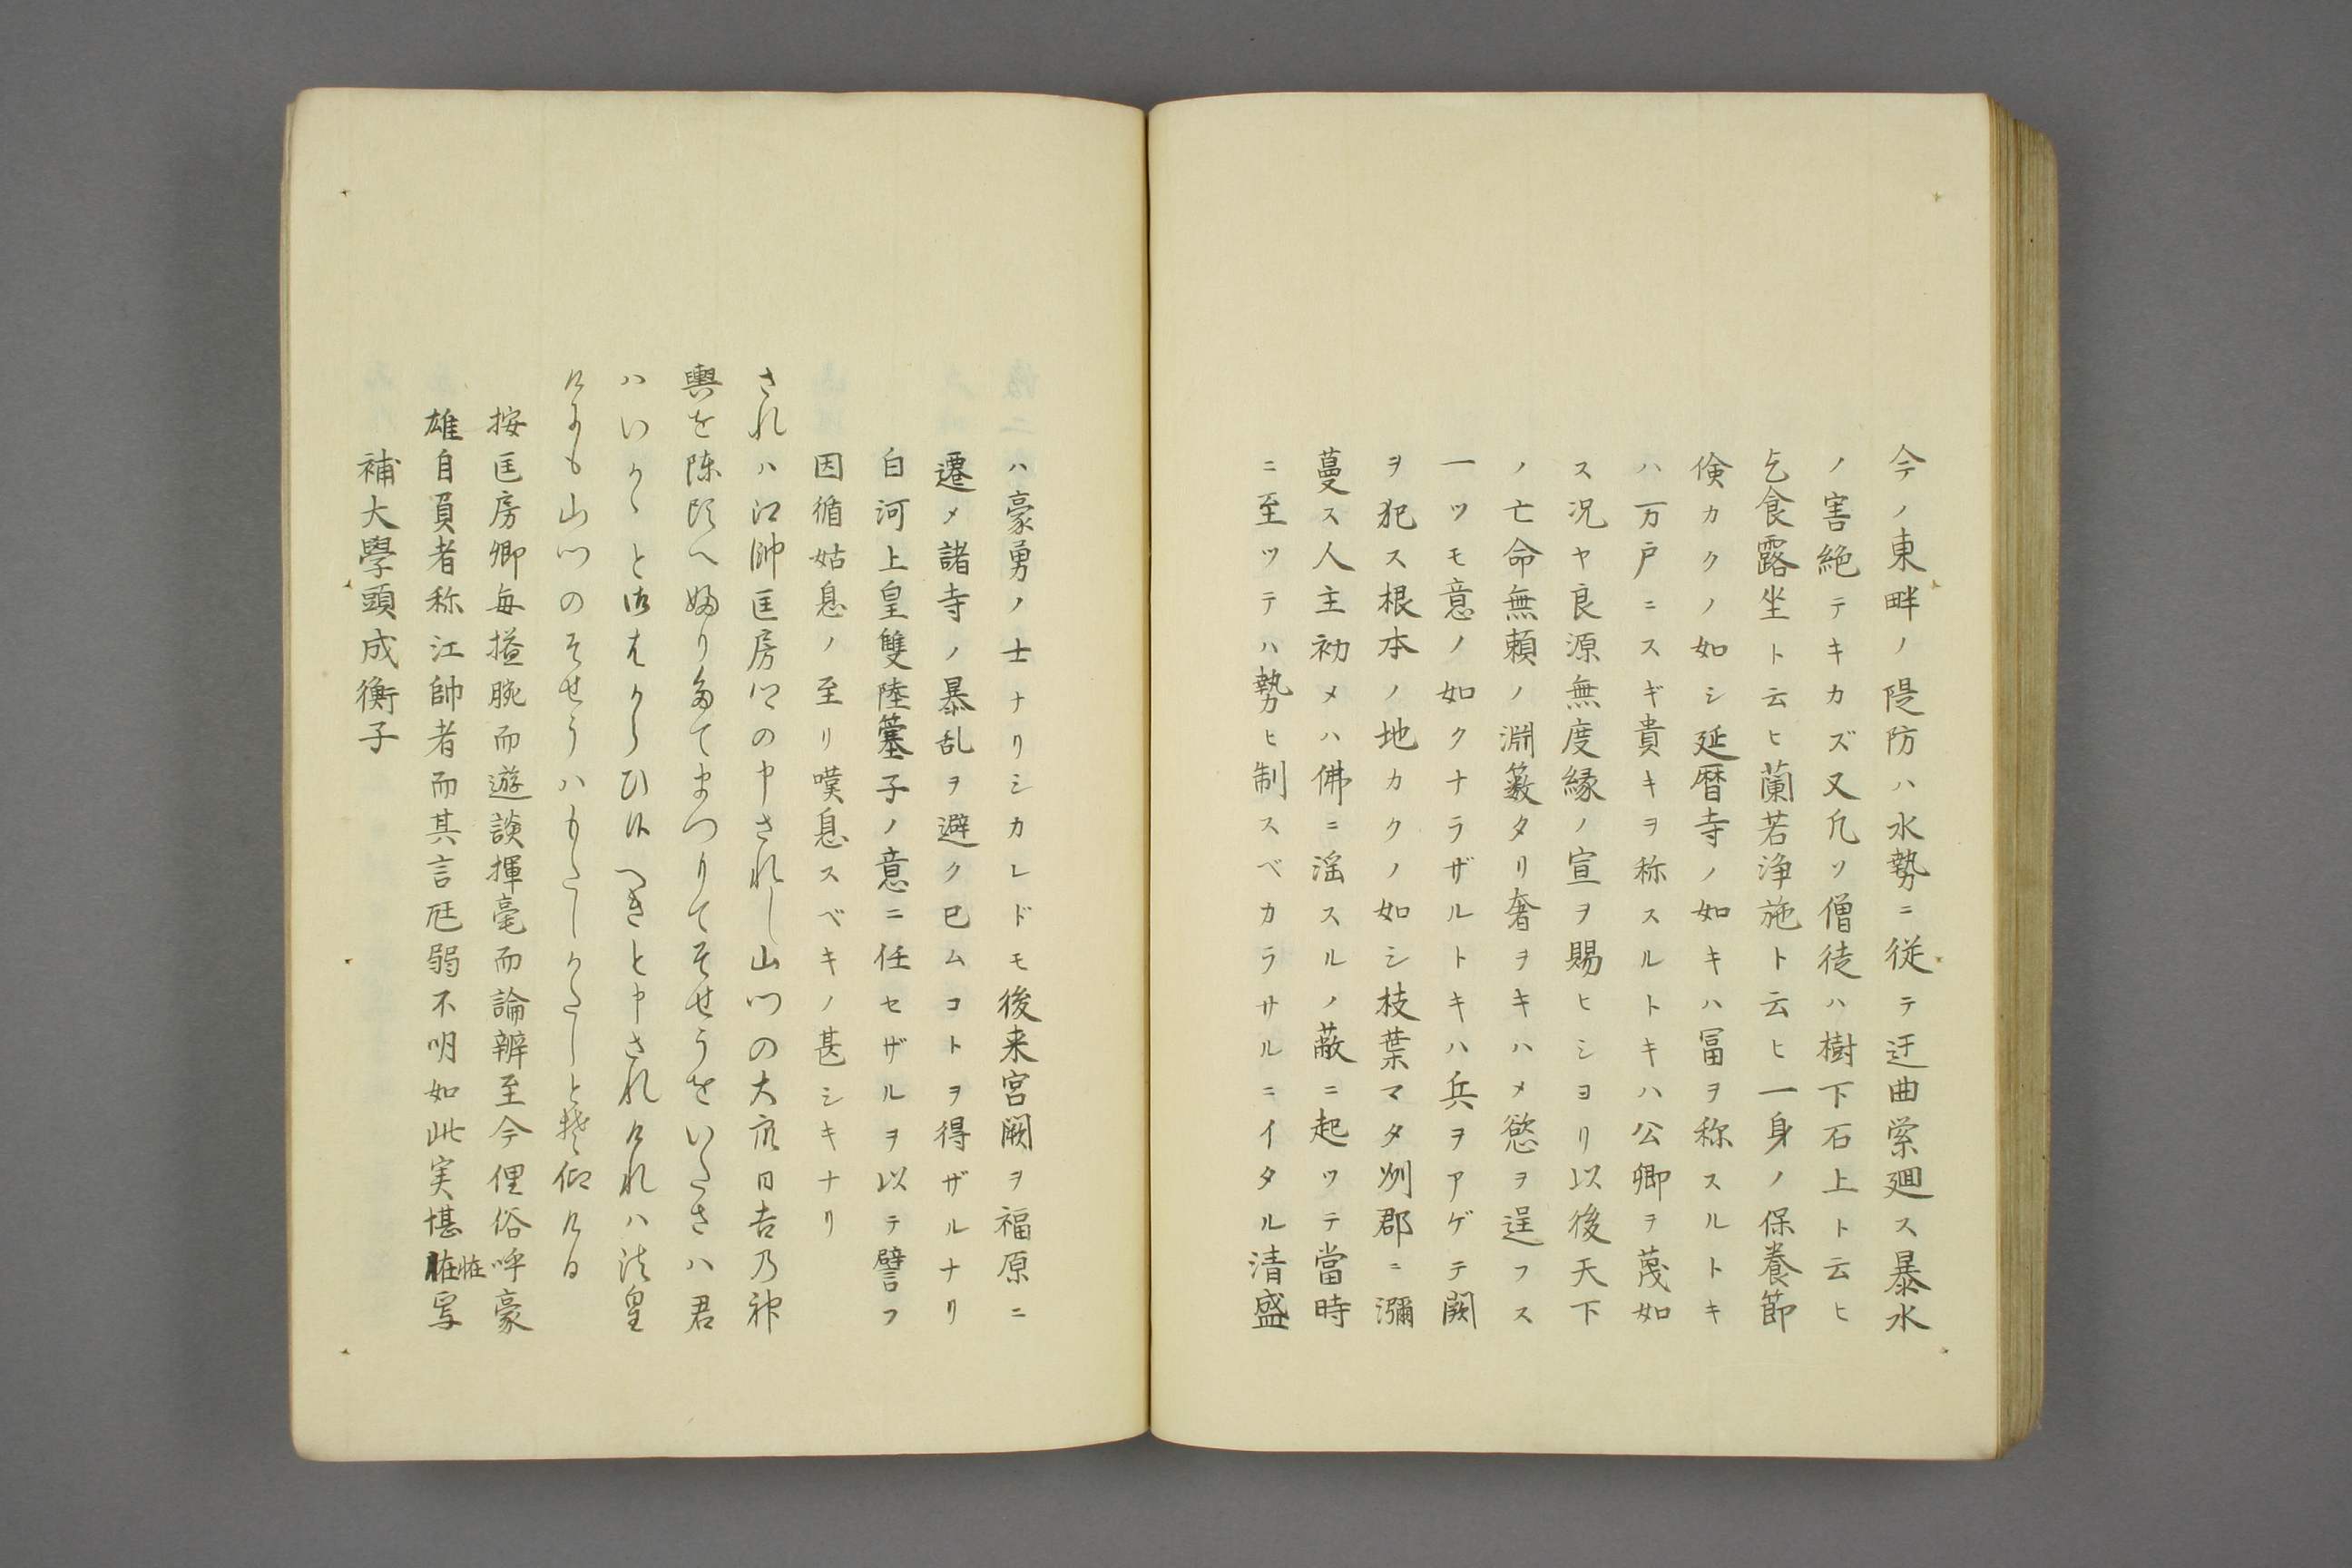 今ノ東畔ノ隄防ハ水勢ニ従テ迂曲縈廻ス暴水
ノ害絶テキカズ又凢ソ僧徒ハ樹下石上ト云ヒ
乞食露坐ト云ヒ蘭若浄施ト云ヒ一身ノ保養節
倹カクノ如シ延暦寺ノ如キハ冨ヲ称スルトキ
ハ万戸ニスギ貴キヲ称スルトキハ公卿ヲ蔑如
ス况ヤ良源無度縁ノ宣ヲ賜ヒシヨリ以後天下
ノ亡命無頼ノ淵藪タリ奢ヲキハメ慾ヲ逞フス
一ツモ意ノ如クナラザルトキハ兵ヲアゲテ闕
ヲ犯ス根本ノ地カクノ如シ枝葉マタ州郡ニ瀰
蔓ス人主初メハ佛ニ滛スルノ蔽ニ起ツテ當時
ニ至ツテハ勢ヒ制スベカラサルニイタル清盛
ハ豪勇ノ士ナリシカレドモ後来宮闕ヲ福原ニ
遷メ諸寺ノ暴乱ヲ避ク已ムコトヲ得ザルナリ
白河上皇雙陸簺子ノ意ニ任セザルヲ以テ譬フ
因循姑息ノ至リ嘆息スベキノ甚シキナリ
されハ江帥匡房卿の申されし山門の大衆日吉乃神
輿を陳頭へ婦り奉てまつりてそせうをいたさハ君
ハいかゝと御はからひ候へきと申されけれハ法皇
けにも山門のそせうハもたしかたしと楚仰ける
按匡房卿毎搤腕而遊談揮毫而論辨至今俚俗呼豪
雄自負者称江帥者而其言尫弱不明如此実堪恠写
恠
補大學頭成衡子